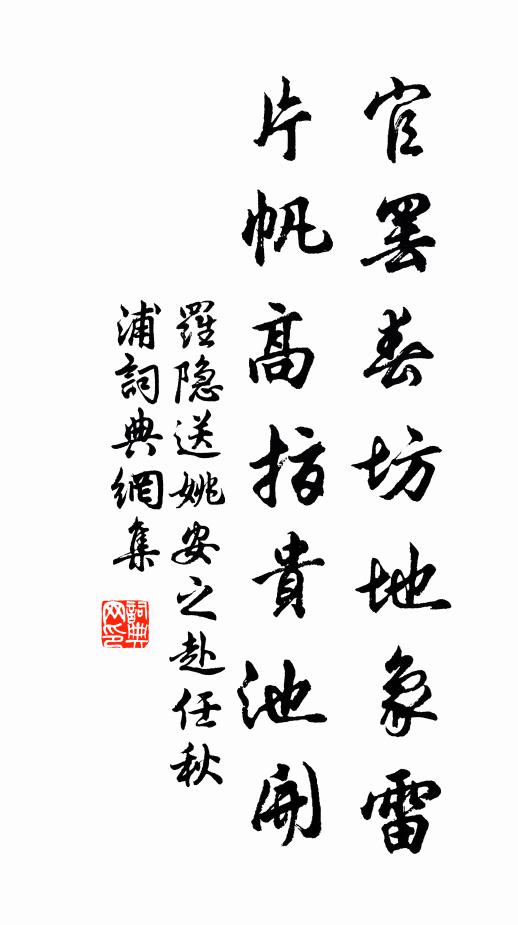 官罢春坊地象雷
片帆高指貴池開
羅隐送姚安之赴任秋
浦詞典網集
詞典网印